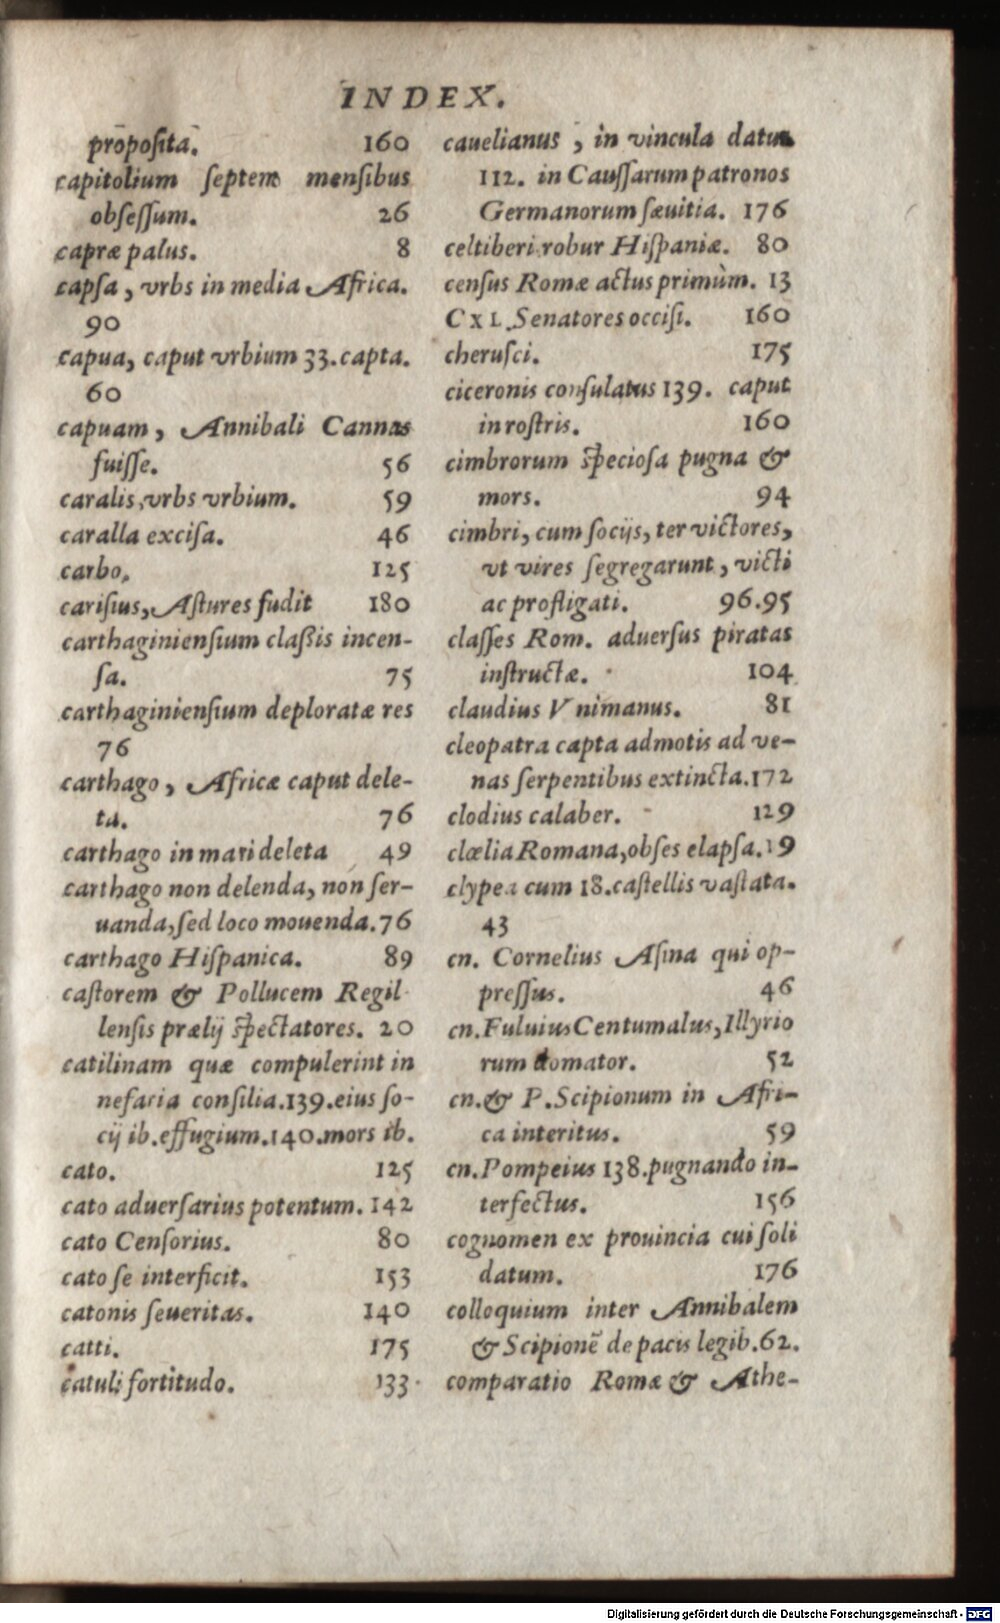 INDEX.
proposita. 160
capitolium ſeptem menſibus
obſeſſum. 26
capræ palus. 8
capſa, vrbs in media Africa.
90
capua, caput vrbium 33. capta.
60
capuam, Annibali Cannas
fuiſſe. 56
caralis, vrbs vrbium. 59
caralla exciſa. 46
carbo, 125
cariſius, Aſtures fudit 180
carthaginienſium claſsis incen-
ſa. 75
carthaginienſium deploratæ res
76
carthago, Africæ caput dele-
ta. 76
carthago in mari deleta 49
carthago non delenda, non ſer-
uanda, ſed loco mouenda. 76
carthago Hiſpanica. 89
caſtorem & Pollucem Regil
lenſis prælij ſpectatores. 20
catilinam quæ compulerint in
nefaria conſilia. 139. eius ſo-
cij ib. effugium. 140. mors ib.
cato. 125
cato aduerſarius potentum. 142
cato Cenſorius. 80
cato ſe interficit. 153
catonis ſeueritas. 140
catti. 175
catuli fortitudo. 133
cauelianus, in vincula datus
112. in Cauſſarum patronos
Germanorum ſæuitia. 176
celtiberi robur Hiſpaniæ. 80
cenſus Romæ actus primùm. 13
CXL. Senatores occiſi. 160
cheruſci. 175
ciceronis conſulatus 139. caput
in roſtris. 160
cimbrorum ſpecioſa pugna &
mors. 94
cimbri, cum ſocijs, ter victores,
vt vires ſegregarunt, victi
ac profligati. 96.95
claſſes Rom. aduerſus piratas
inſtructæ. 104
claudius Vnimanus. 81
cleopatra capta admotis ad ve-
nas ſerpentibus extincta. 172
clodius calaber. 129
clœlia Romana, obſes elapſa. 19
clypea cum 18. caſtellis vaſtata.
43
cn. Cornelius Aſina qui op-
preſſus. 46
cn. Fuluius Centumalus, Illyrio
rum domator. 52
cn. & P. Scipionum in Afri-
ca interitus. 59
cn. Pompeius 138. pugnando in-
terfectus. 156
cognomen ex prouincia cui ſoli
datum. 176
colloquium inter Annibalem
& Scipionẽ de pacis legib. 62.
comparatio Romæ & Athe-
Digitalisierung gefördert durch die Deutsche Forschungsgemeinschaft - DFG